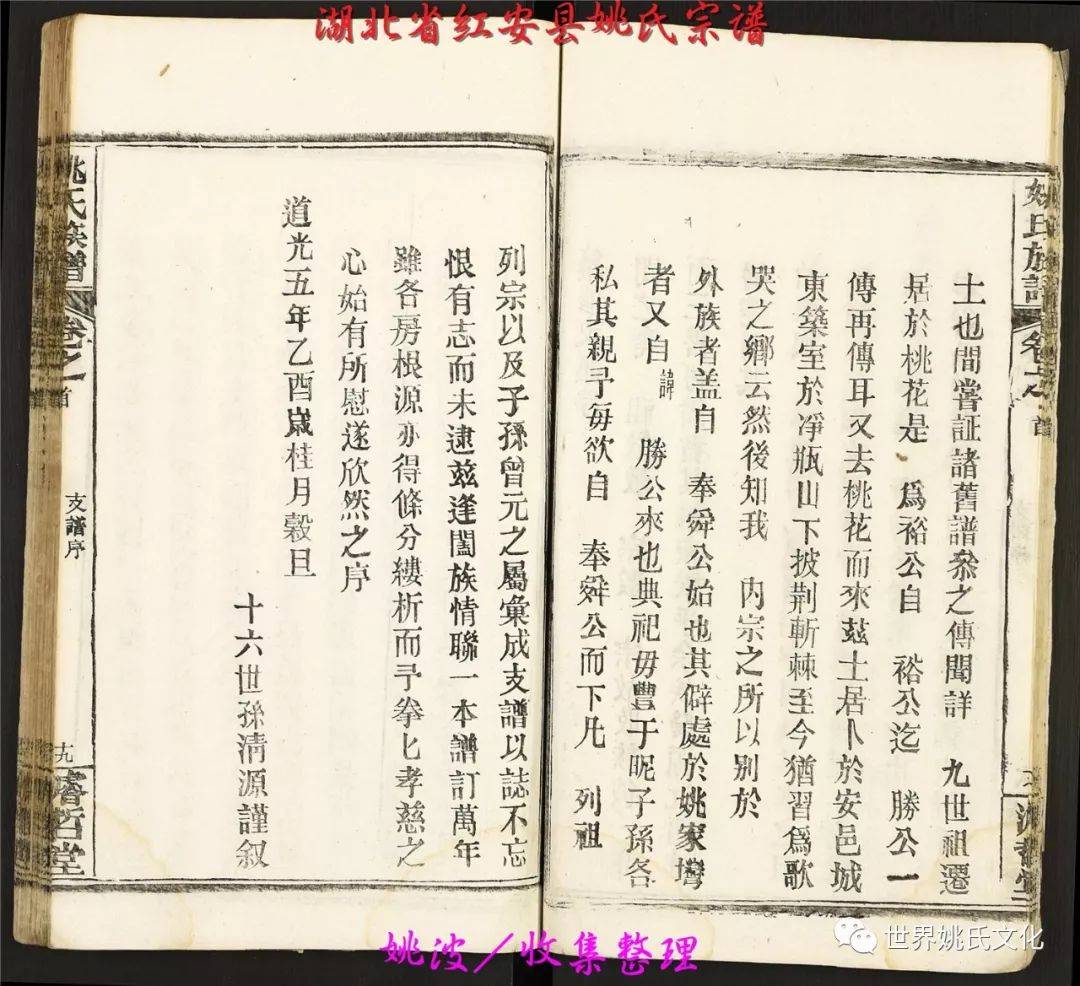 湖北省红安县姚氏宗谱
姚氏族譜 卷之 首
土也間嘗証諸舊譜叅之傳聞詳 九世祖遷
居於桃花是 爲裕公自 裕公迄 勝公一
傳再傳耳又去桃花而來兹土居卜於安邑城
東築室於凈瓶山下披荆斬棘至今猶習爲歌
哭之鄉云然後知我 内宗之所以别於
外族者盖自 奉舜公始也其僻處於姚家灣
者又自諱 勝公來也典祀毋豐于昵子孫各
私其親予每欲自 奉舜公而下凡 列祖
列宗以及子孫曾元之屬彙成支譜以誌不忘
恨有志而未逮兹逢闔族情聯一本譜訂萬年
雖各房根源亦得條分縷析而予拳匕孝慈之
心始有所慰遂欣然之序
道光五年乙酉嵗桂月榖旦
十六世孫清源謹叙
姚氏族譜 卷之 首 支譜序 十九 濬哲堂
姚波／收集整理
世界姚氏文化